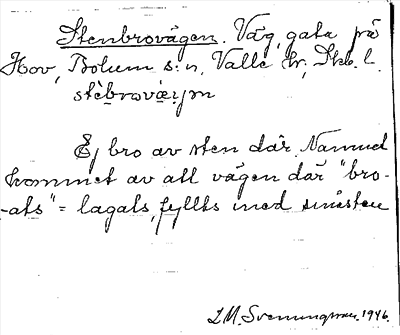 Stenbrovägen. Väg, gata på
Hov, Bolum s:n, Valle hr, Skb. l.
stèbrovæ̱yn
Ej bro av sten där. Namnet
kommet av att vägen där "bro-
-ats" = lagats, fyllts med småsten
L.M. Svenungsson. 1946.